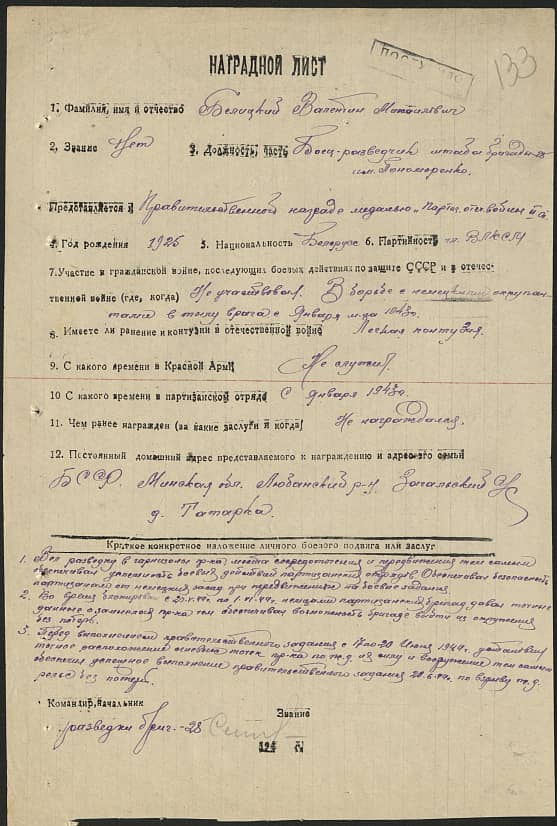 133
НАГРАДНОЙ ЛИСТ
1. Фамилия, имя и отчество Белицкий Валентин
2. Звание нет 3. Должность, часть Боец-разведчик штаба бригады-28
им. Пономоренко.
Представляется к Правительственной награде медалью "Партиз. отеч. войны II ст.
4. Год рождения 1925 5. Национальность Белорус 6. Партийность чл. ВЛКСМ
7. Участие в гражданской войне, последующих боевых действиях по защите СССР и в отече-
ственной войне (где, когда) Не участвовал. В борьбе с немецкими оккупан-
тами в тылу врага с Января м-ца 1943г.
8. Имеете ли ранение и контузии в отечественной войне Легкая контузия.
9. С какого времени в Красной Арми Не служил.
10 С какого времени в партизанском отряде С Января 1943г.
11. Чем ранее награжден (за какие заслуги и когда) Не награждался.
12. Постоянный домашний адрес представляемого к награждению и адрес его семьи
БССР. Минская обл. Любанский р-н, Загальский
д. Татарка.
Краткое конкретное изложение личного боевого подвига или заслуг
1. Вел разведку в гарнизоны пр-ка места сосредоточения и передвижения тем самым
обеспечивал успешность боевых действий партизанских отрядов. Обеспечивал безопасность
партизан от немецких засад при передвижении на боевые задания.
2. Во время блокировки с по немцами партизанских бригад давал точные
данные о занимаемой пр-ка тем обеспечивал возможность бригаде выйти из окружения
без потерь.
3. Перед выполнением правительственного задания с 17 по 20 Июня 1944г. установил
точное расположение огневых точек пр-ка по ж.д. их силу и вооружение тем самым
обеспечил успешное выполнение правительственного задания 20.6.44г. по взрыву ж.д.
рельс без потерь.
Командир, начальник
Звание
разведки бриг.-28
194 г.